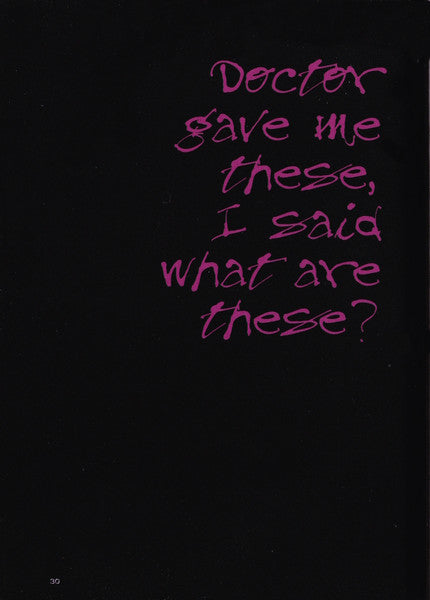 Doctor
gave me
these,
I said
what are
these?
30